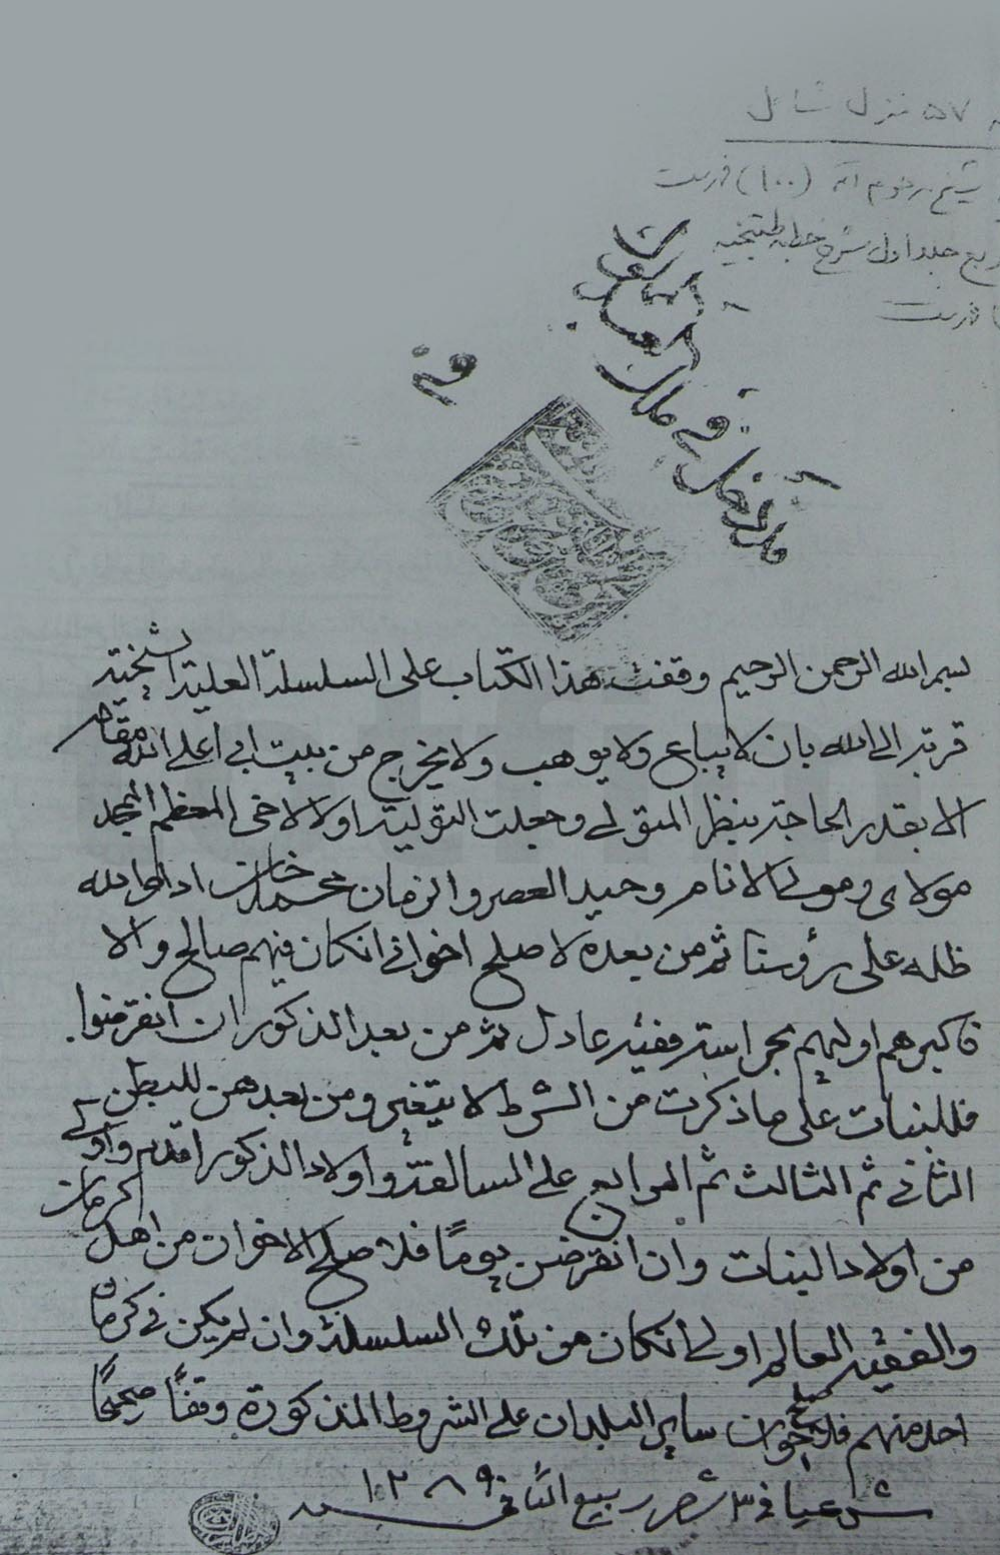 ۵۷ منزل شامل
شیخ مرحوم (۱۰۰) فهرست
جلد اول شرح خطبه طتنجیه
فهرست
بسم الله الرحمن الرحيم وقفت هذا الكتاب على السلسلة العلية الشيخية
قربة الى الله بان لا يباع ولا يوهب ولا يخرج من بيت ابي اعلى الله مقامه
الا بقدر الحاجة بنظر المتولي وجعلت التولية اولا لاخي المعظم الممجد
مولاى ومولى الانام وحيد العصر والزمان محمد خان ادام الله
ظله على رؤسنا ثم من بعده لاصلح اخواني انكان فيهم صالح والا
فاكبرهم اوليهم بحراسة فقيه عادل ثم من بعد الذكور ان انقرضوا
فللبنات على ما ذكرت من الشرط لا يتغير ومن بعدهن للبطن
الثاني ثم الثالث ثم الرابع على السالفة واولاد الذكور اقدم واولى
من اولاد البنات وان انقرضن يوما فلاصلح الاخوان من اهل كرمان
والفقيه العالم اولى انكان من تلك السلسلة وان لم يكن في كرمان
احد منهم فلاصلح اخوان ساير البلدان على الشروط المذكورة وقفًا صحيحًا
شرعيا في ٣ شهر ربيع الثاني سنه ١٢٨٩